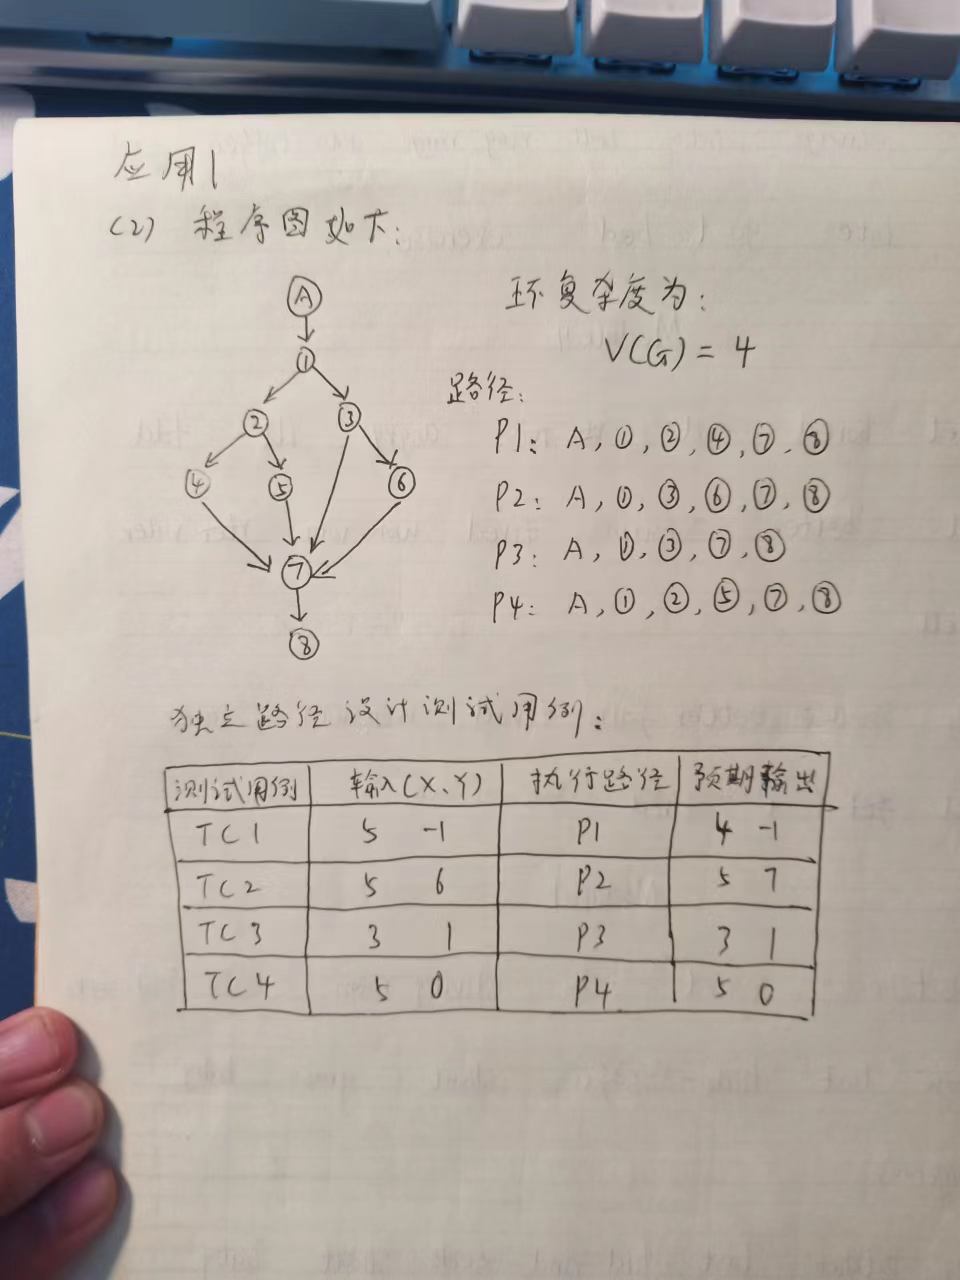 应用1
(2) 程序图如下:
A
①
②
③
④
⑤
⑥
⑦
⑧
环复杂度为:
V(G) = 4
路径:
P1: A, ①, ②, ④, ⑦, ⑧
P2: A, ①, ③, ⑥, ⑦, ⑧
P3: A, ①, ③, ⑦, ⑧
P4: A, ①, ②, ⑤, ⑦, ⑧
独立路径设计测试用例:
测试用例 输入(X、Y) 执行路径 预期输出
TC1 5 -1 P1 4 -1
TC2 5 6 P2 5 7
TC3 3 1 P3 3 1
TC4 5 0 P4 5 0